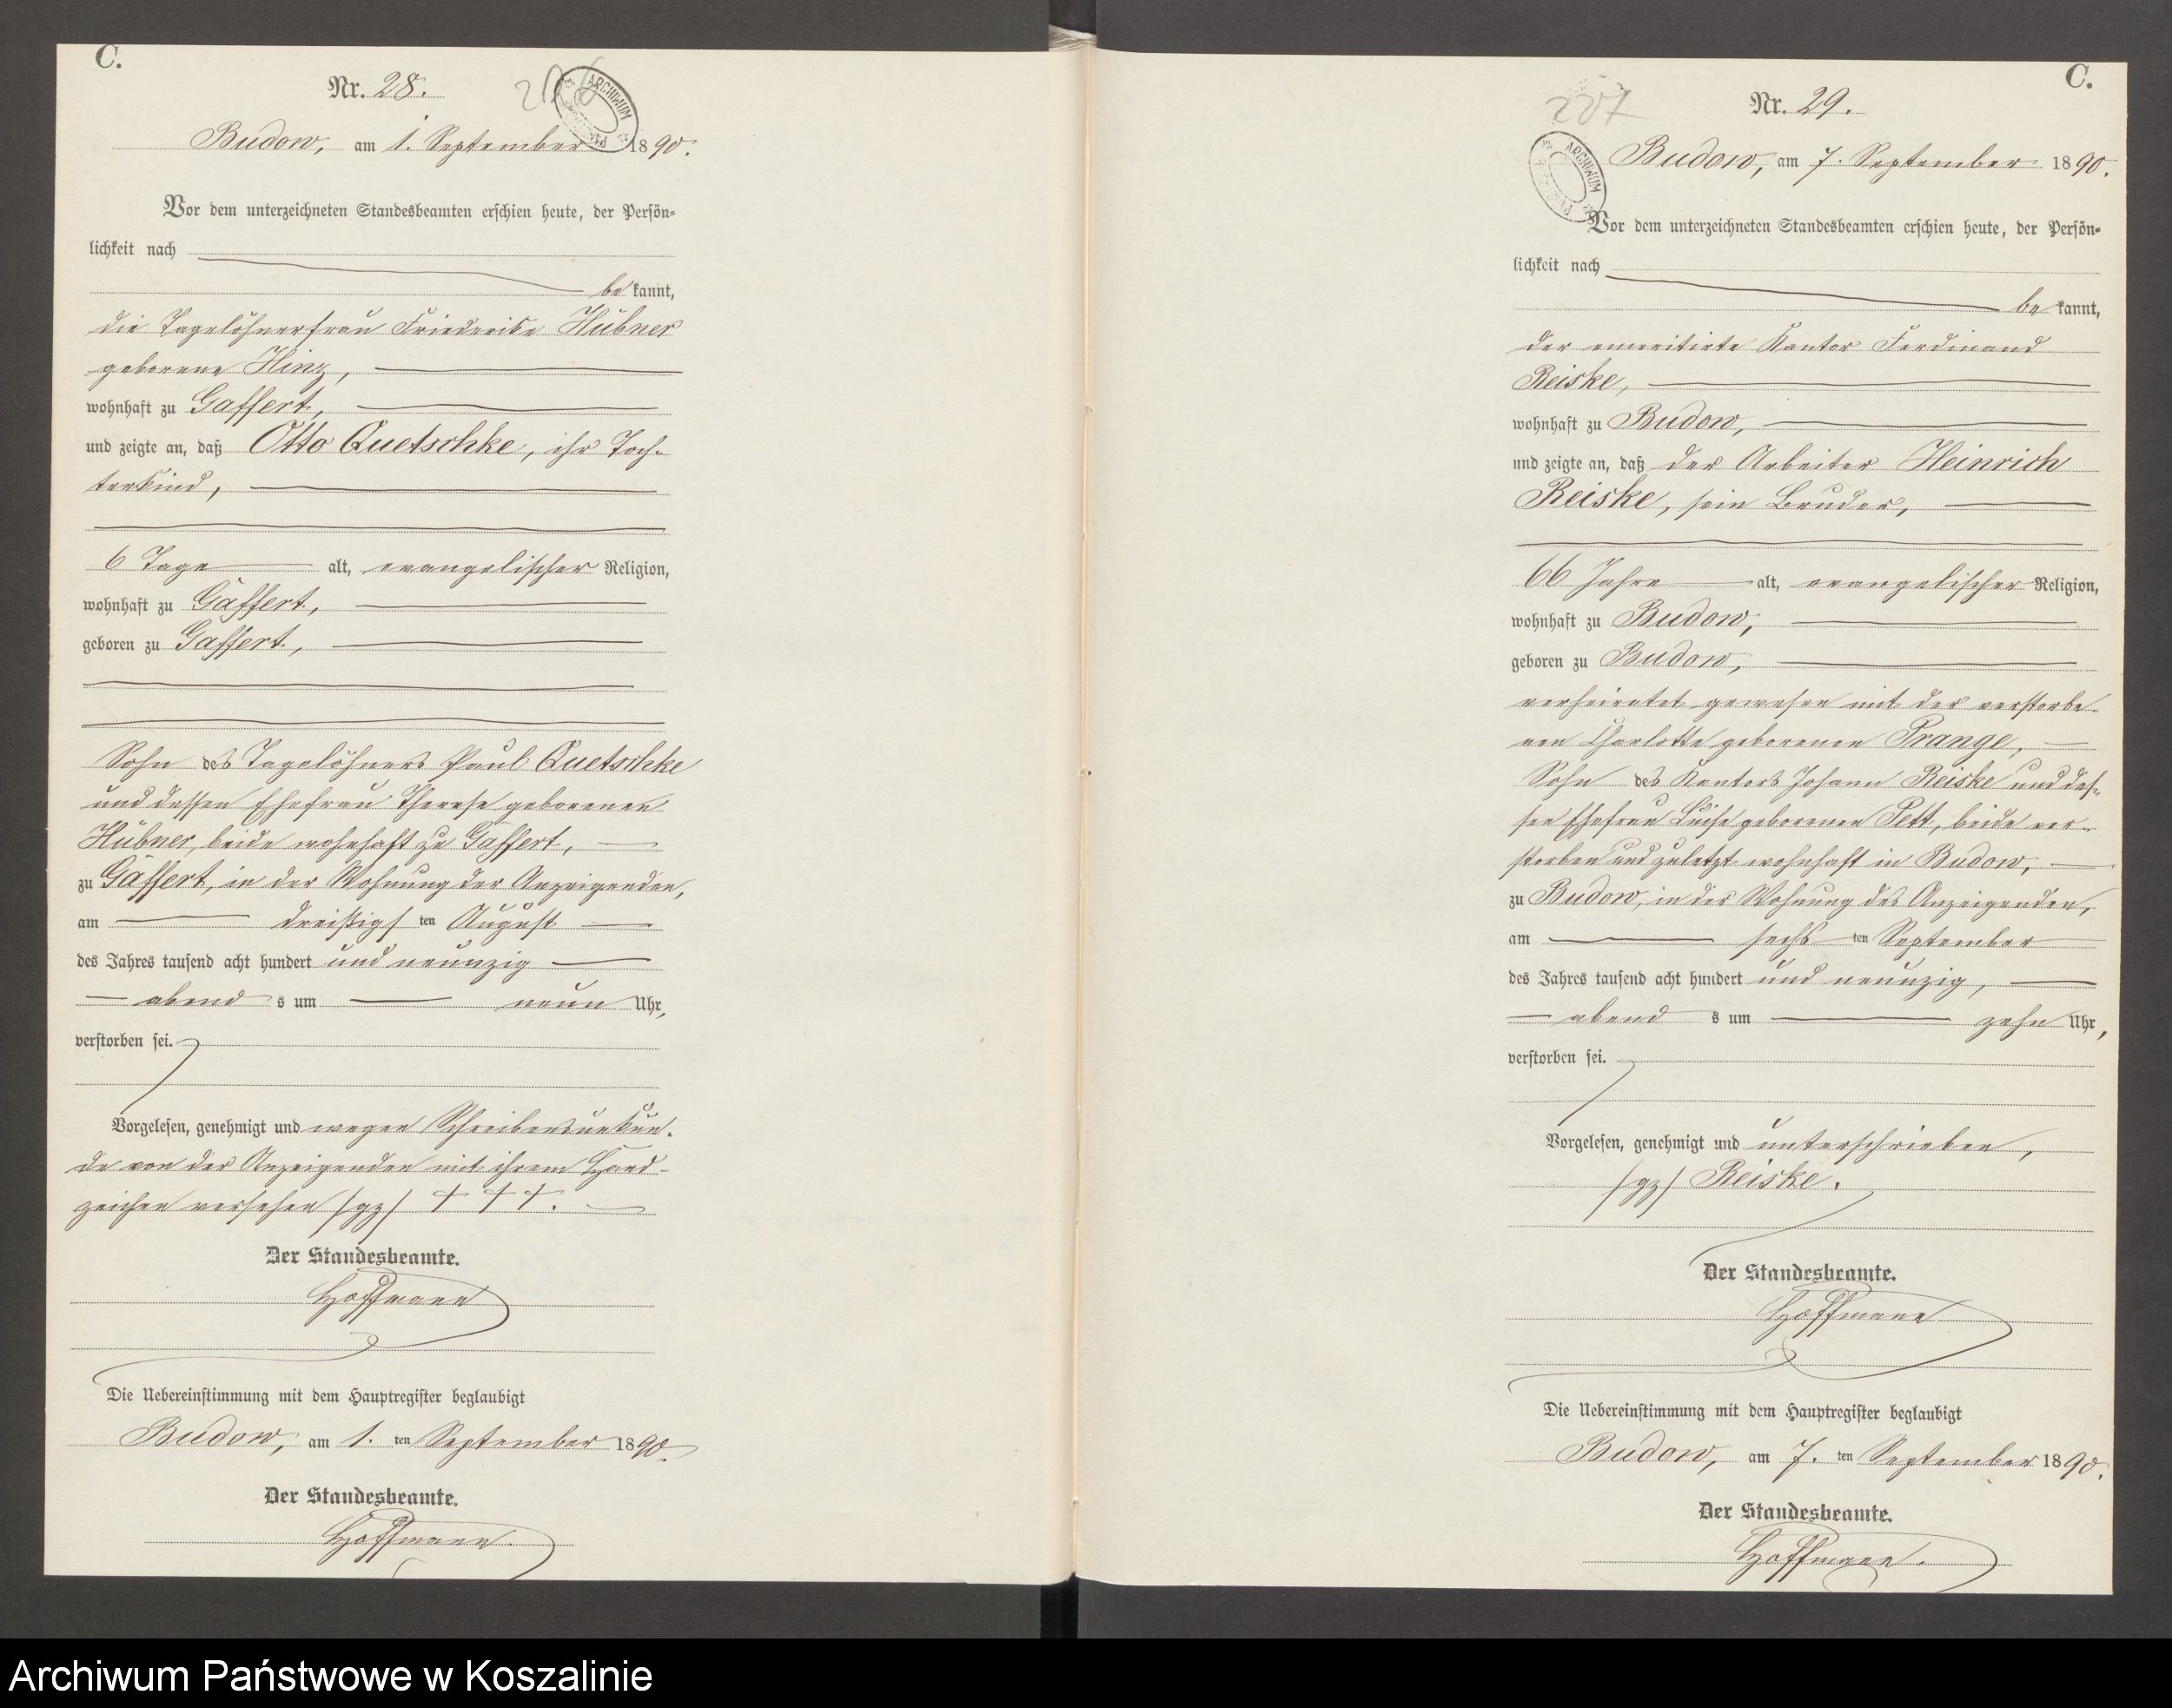 C.
Nr. 28.
206
ARCHIWUM
Budow, am 1. September 1890.
Vor dem unterzeichneten Standesbeamten erschien heute, der Persön-
lichkeit nach
be kannt,
die Tagelöhnerfrau Friederike Hübner
geborene Hinz,
wohnhaft zu Gaffert,
und zeigte an, daß Otto Quetschke, ihr Toch-
terkind,
6 Tage alt, evangelischer Religion,
wohnhaft zu Gaffert,
geboren zu Gaffert,
Sohn des Tagelöhners Paul Quetschke
und dessen Ehefrau Therese geborenen
Hübner, beide wohnhaft zu Gaffert,
zu Gaffert, in der Wohnung der Anzeigenden,
am dreißigs ten August
des Jahres tausend acht hundert und neunzig
abend s um neun Uhr,
verstorben sei.
Vorgelesen, genehmigt und wegen Schreibensunkun-
de von der Anzeigenden mit ihrem Hand-
zeichen versehen (gz) + + +.
Der Standesbeamte.
Hoffmann
Die Uebereinstimmung mit dem Hauptregister beglaubigt
Budow, am 1. ten September 1890.
Der Standesbeamte.
Hoffmann.
C.
Nr. 29.
207
ARCHIWUM
Budow, am 7. September 1890.
Vor dem unterzeichneten Standesbeamten erschien heute, der Persön-
lichkeit nach
be kannt,
der emeritirte Kantor Ferdinand
Reiske,
wohnhaft zu Budow,
und zeigte an, daß der Arbeiter Heinrich
Reiske, sein Bruder,
66 Jahre alt, evangelischer Religion,
wohnhaft zu Budow,
geboren zu Budow,
verheiratet gewesen mit der verstorbe-
nen Charlotte geborenen Prange,
Sohn des Kantors Johann Reiske und des-
sen Ehefrau Luise geborenen Pett, beide ver-
storben und zuletzt wohnhaft in Budow,
zu Budow, in der Wohnung des Anzeigenden,
am sechs ten September
des Jahres tausend acht hundert und neunzig,
abend s um zehn Uhr,
verstorben sei.
Vorgelesen, genehmigt und unterschrieben,
(gz) Reiske.
Der Standesbeamte.
Hoffmann
Die Uebereinstimmung mit dem Hauptregister beglaubigt
Budow, am 7. ten September 1890.
Der Standesbeamte.
Hoffmann.
Archiwum Państwowe w Koszalinie